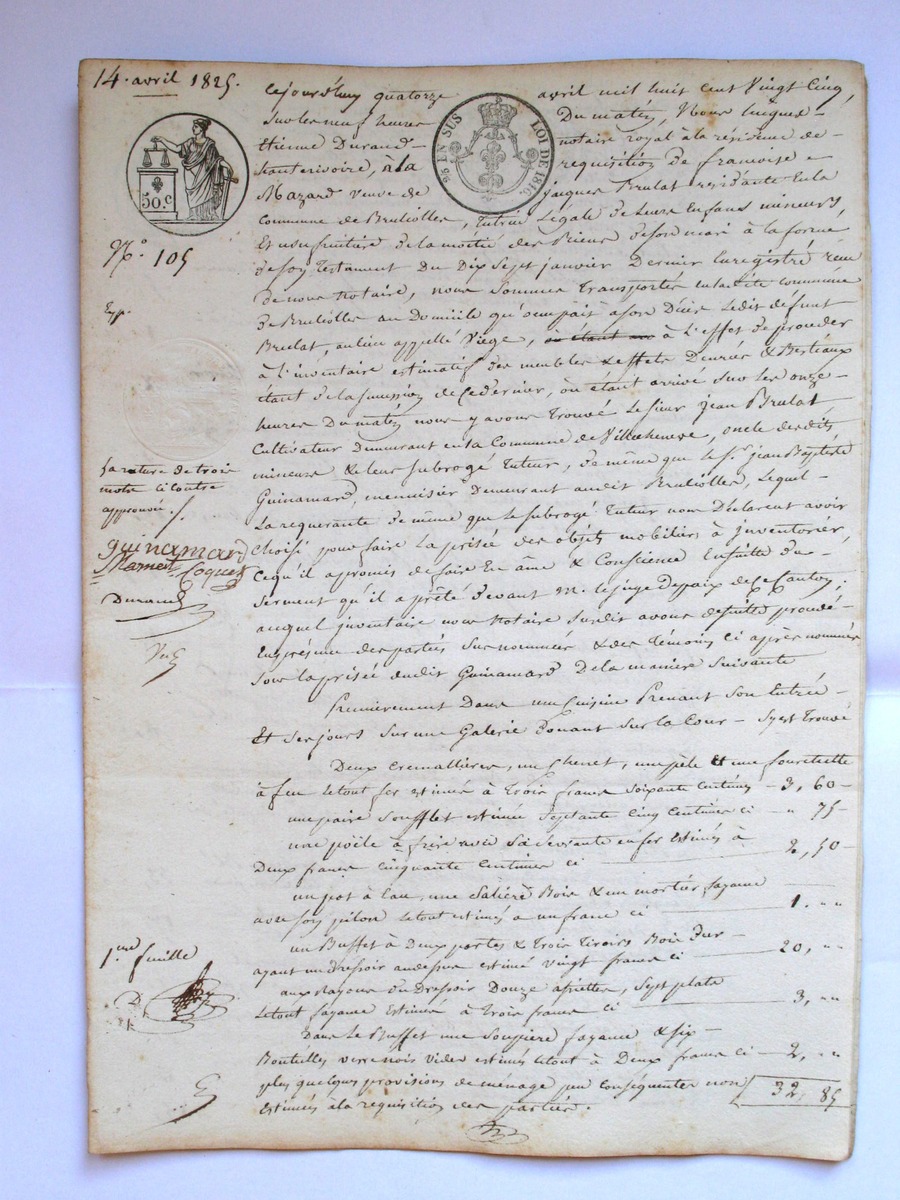 14. avril 1825.
Cejourd'huy quatorze avril mil huit cent Vingt Cinq,
Sur les neuf heures Du matin, Nous Jacques
Etienne Durand notaire royal à la résidence de
hauterivoire, à la requisition De francoise
Mazard Veuve de jacques Brulat residante En la
Commune de Brulliolles, Tutrice Légale De Leurs Enfans mineurs,
Et usufruitière De la moitié des Biens de son mari à la forme
de son Testament Du Dix Sept janvier Dernier Enregistré reçu
De nous Notaire, nous Sommes Transportés en ladite commune
De Brulliolles au Domicile qu'occupait à son Décès Ledit defunt
Brulat, au lieu appellé Viége, à L'effet de procéder
à L'inventaire estimatif des meubles & effets Denrées & Bestiaux
étant de la succession de Ce dernier, où étant arrivé Sur Les onze
heures Du matin nous y avons Trouvé Le Sieur jean Brulat
Cultivateur Demeurant en la Commune de Villecheneve, oncle desdits
mineurs & leur Subrogé Tuteur, De même que le Sr. jean Baptiste
Guinamard, menuisier Demeurant audit Brulliolles, Lequel
La requerante De même que le Subrogé Tuteur nous Déclarent avoir
Choisi pour faire La prisée des objets mobiliers à inventorier,
Ce qu'il a promis de faire En âme & Conscience Ensuite du
Serment qu'il a prêté devant M. le juge de paix de Ce Canton;
auquel inventaire nous Notaire Susdit avons de suite procédé
En présence des parties Sus nommées & des témoins Ci après nommés
Sous la prisée dudit Guinamard De la maniere Suivante
Premièrement Dans une Cuisine Prenant Son Entrée
Et Ses jours Sur une Galerie Donant Sur la Cour – S'y est Trouvé
Deux Cremallières, un Chenet, une pèle Et une fourchette
à feu Le tout fer estimés à Trois francs Soixante Centimes – 3, 60
une paire Soufflet estimée Soixante quinze Centimes ci – " 75
une poële à frire avec Sa Servante en fer Estimés à
Deux francs Cinquante Centimes ci 2, 50
un pot à Eau, une Salière Bois & un mortier fayance
avec Son pilon Le tout estimés à un franc ci 1. " "
un Buffet à Deux portes & Trois Tiroirs Bois Dur
ayant un Dressoir audessus estimé Vingt francs ci 20, " "
aux Rayons du Dressoir Douze assiettes, Sept plats
Le tout fayance Estimés à Trois francs ci 3, " "
Dans Le Buffet une Soupiere fayance & Six
Bouteilles verre noir Vides estimés Le tout à Deux francs ci 2, " "
plus quelques provisions de ménage peu Conséquentes non
Estimées à la requisition des parties.
32, 85
50.c
25 EN SUS
LOI DE 1816.
N.° 105
Exp.
La rature de trois
mots ci Contre
approuvée.
guinamard
Coquet
Durand
1.ere feuille